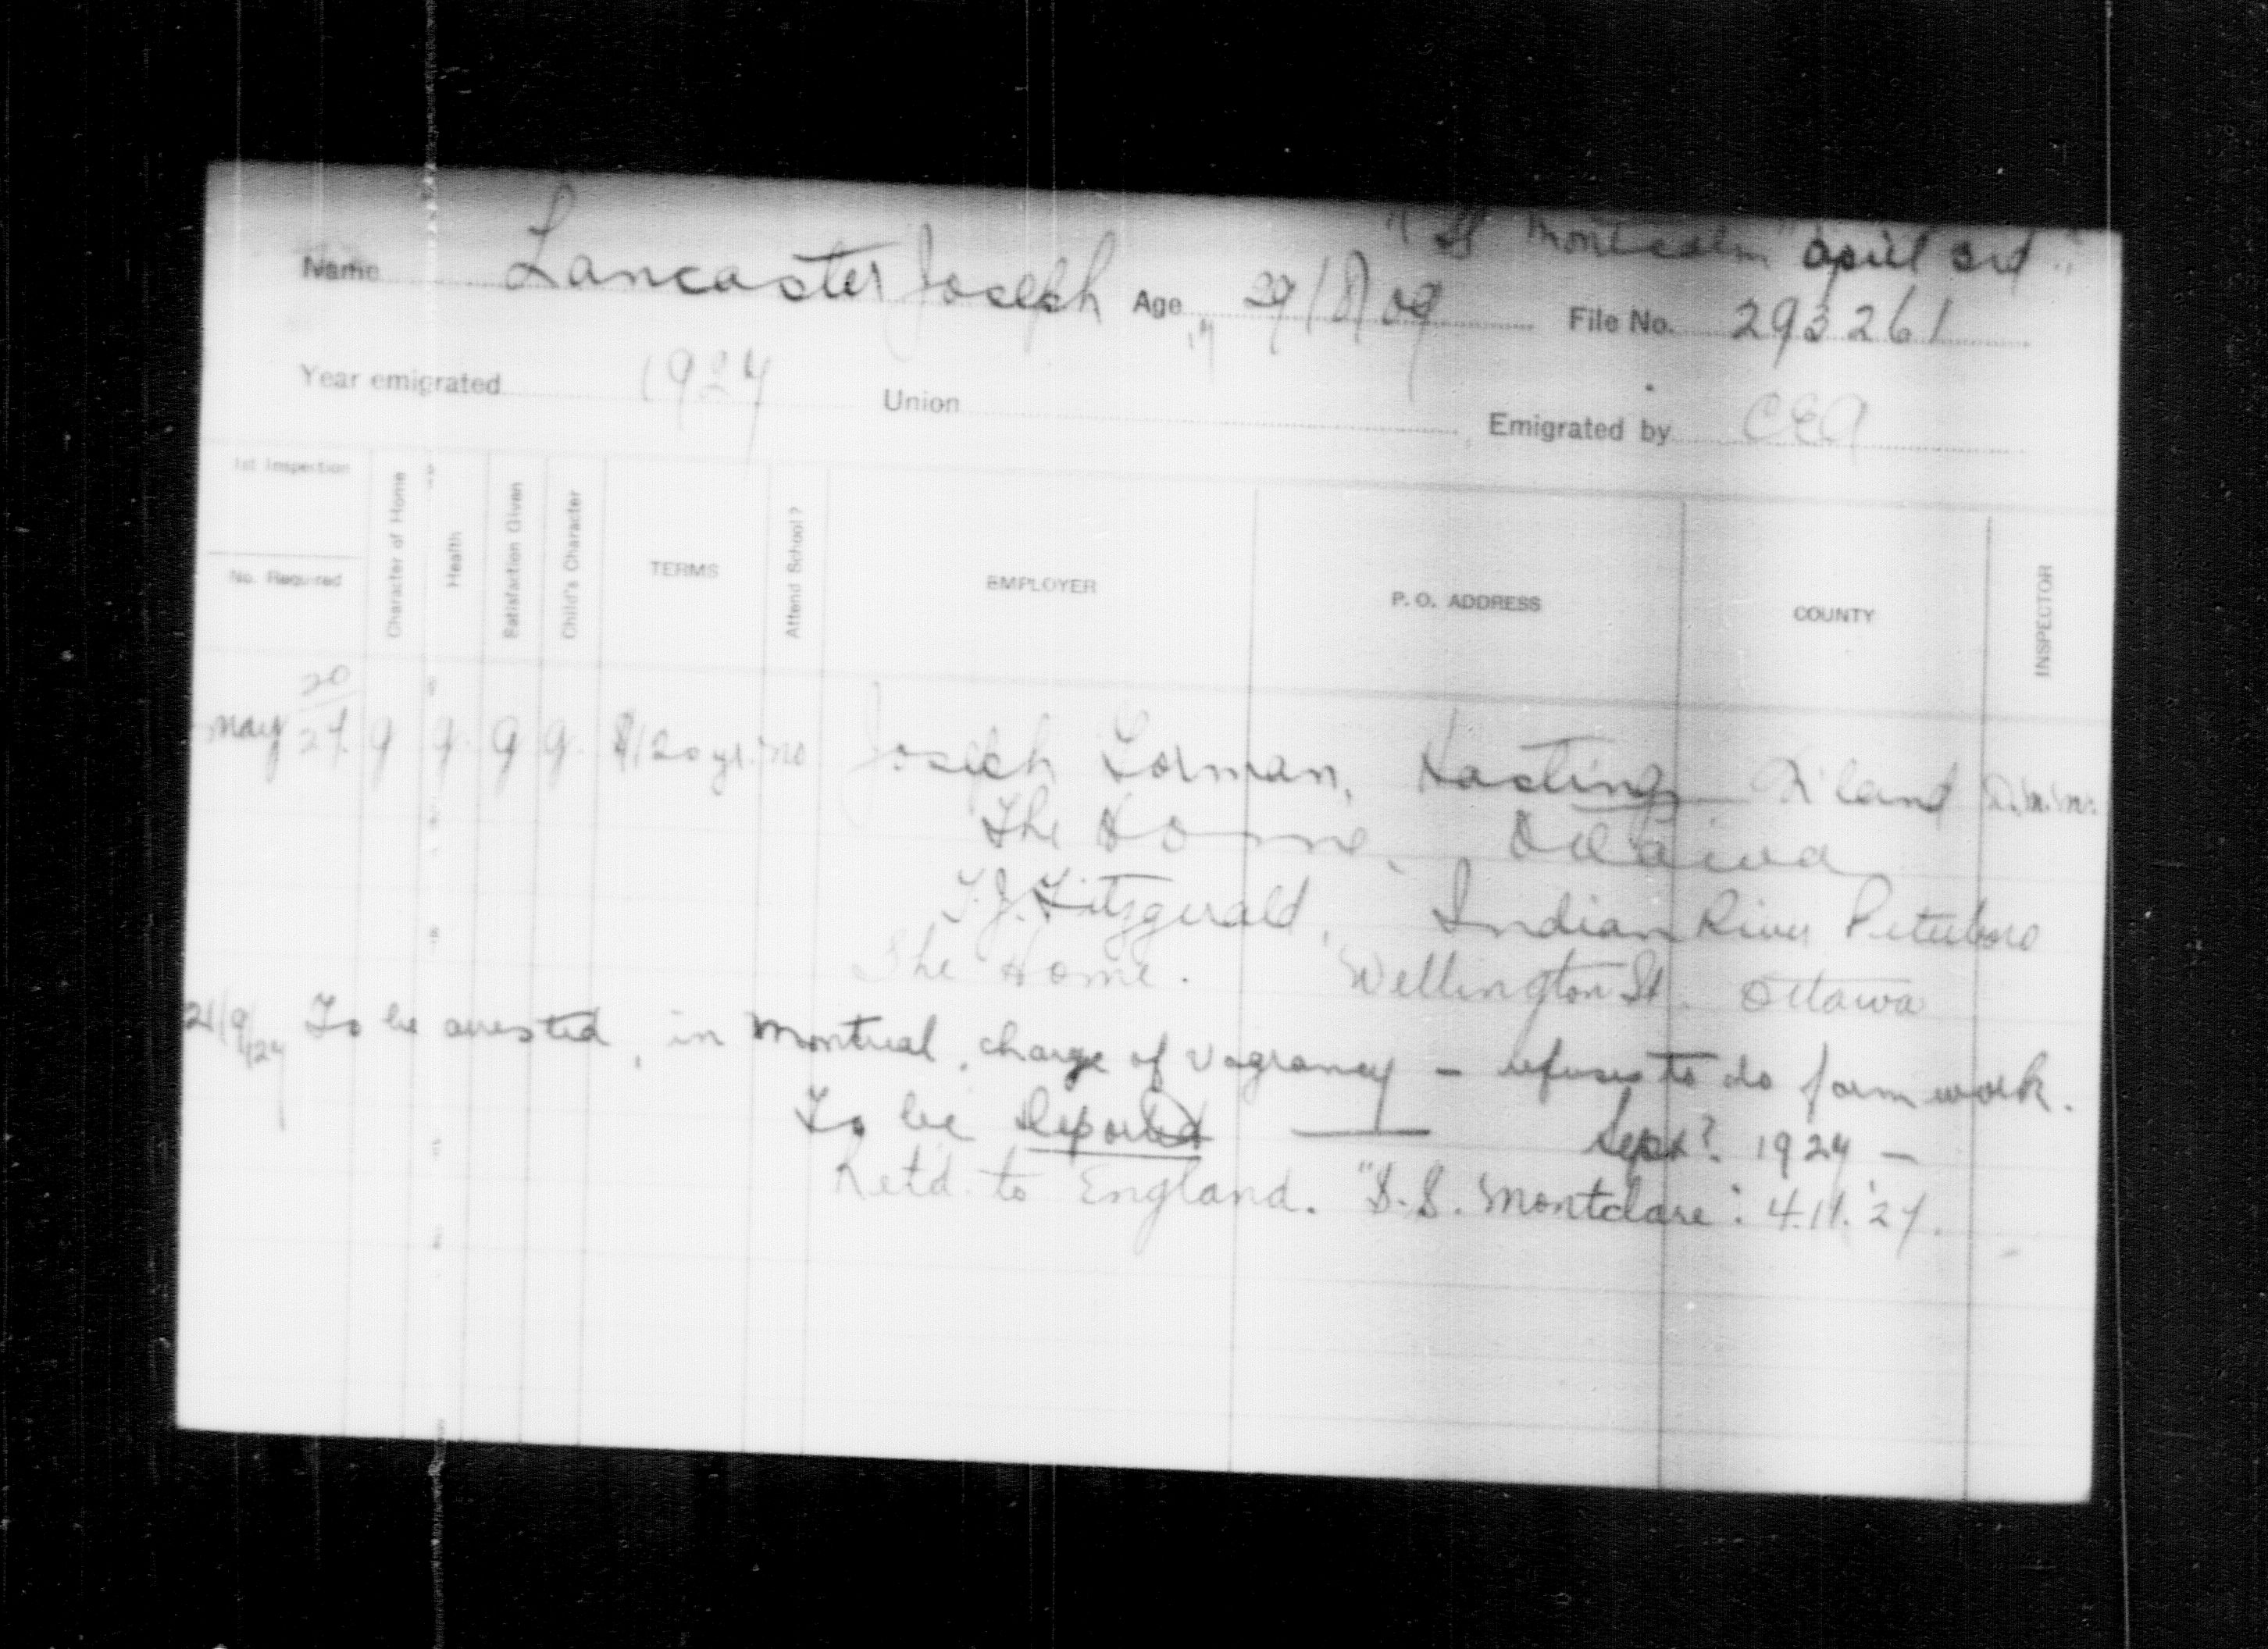 "SS Montcalm" April 3rd
Name Lancaster Joseph Age 29/8/09 File No. 293261
Year emigrated 1924 Union Emigrated by CEA
1st Inspection
No. Required
Character of Home
Health
Satisfaction Given
Child's Character
TERMS
Attend School?
EMPLOYER
P. O. ADDRESS
COUNTY
INSPECTOR
20
May 24. g g. g g. $120 yr. no Joseph Lorman, Hastings N'land
The Home, Ottawa
T.J. Fitzgerald, Indian River Peterboro
The Home. Wellington St. Ottawa
21/9/24 To be arrested, in Montreal, charge of vagrancy - refuses to do farm work.
To be Deported — Sept? 1924 -
Retd. to England. "S.S. Montclare". 4.11.'24.